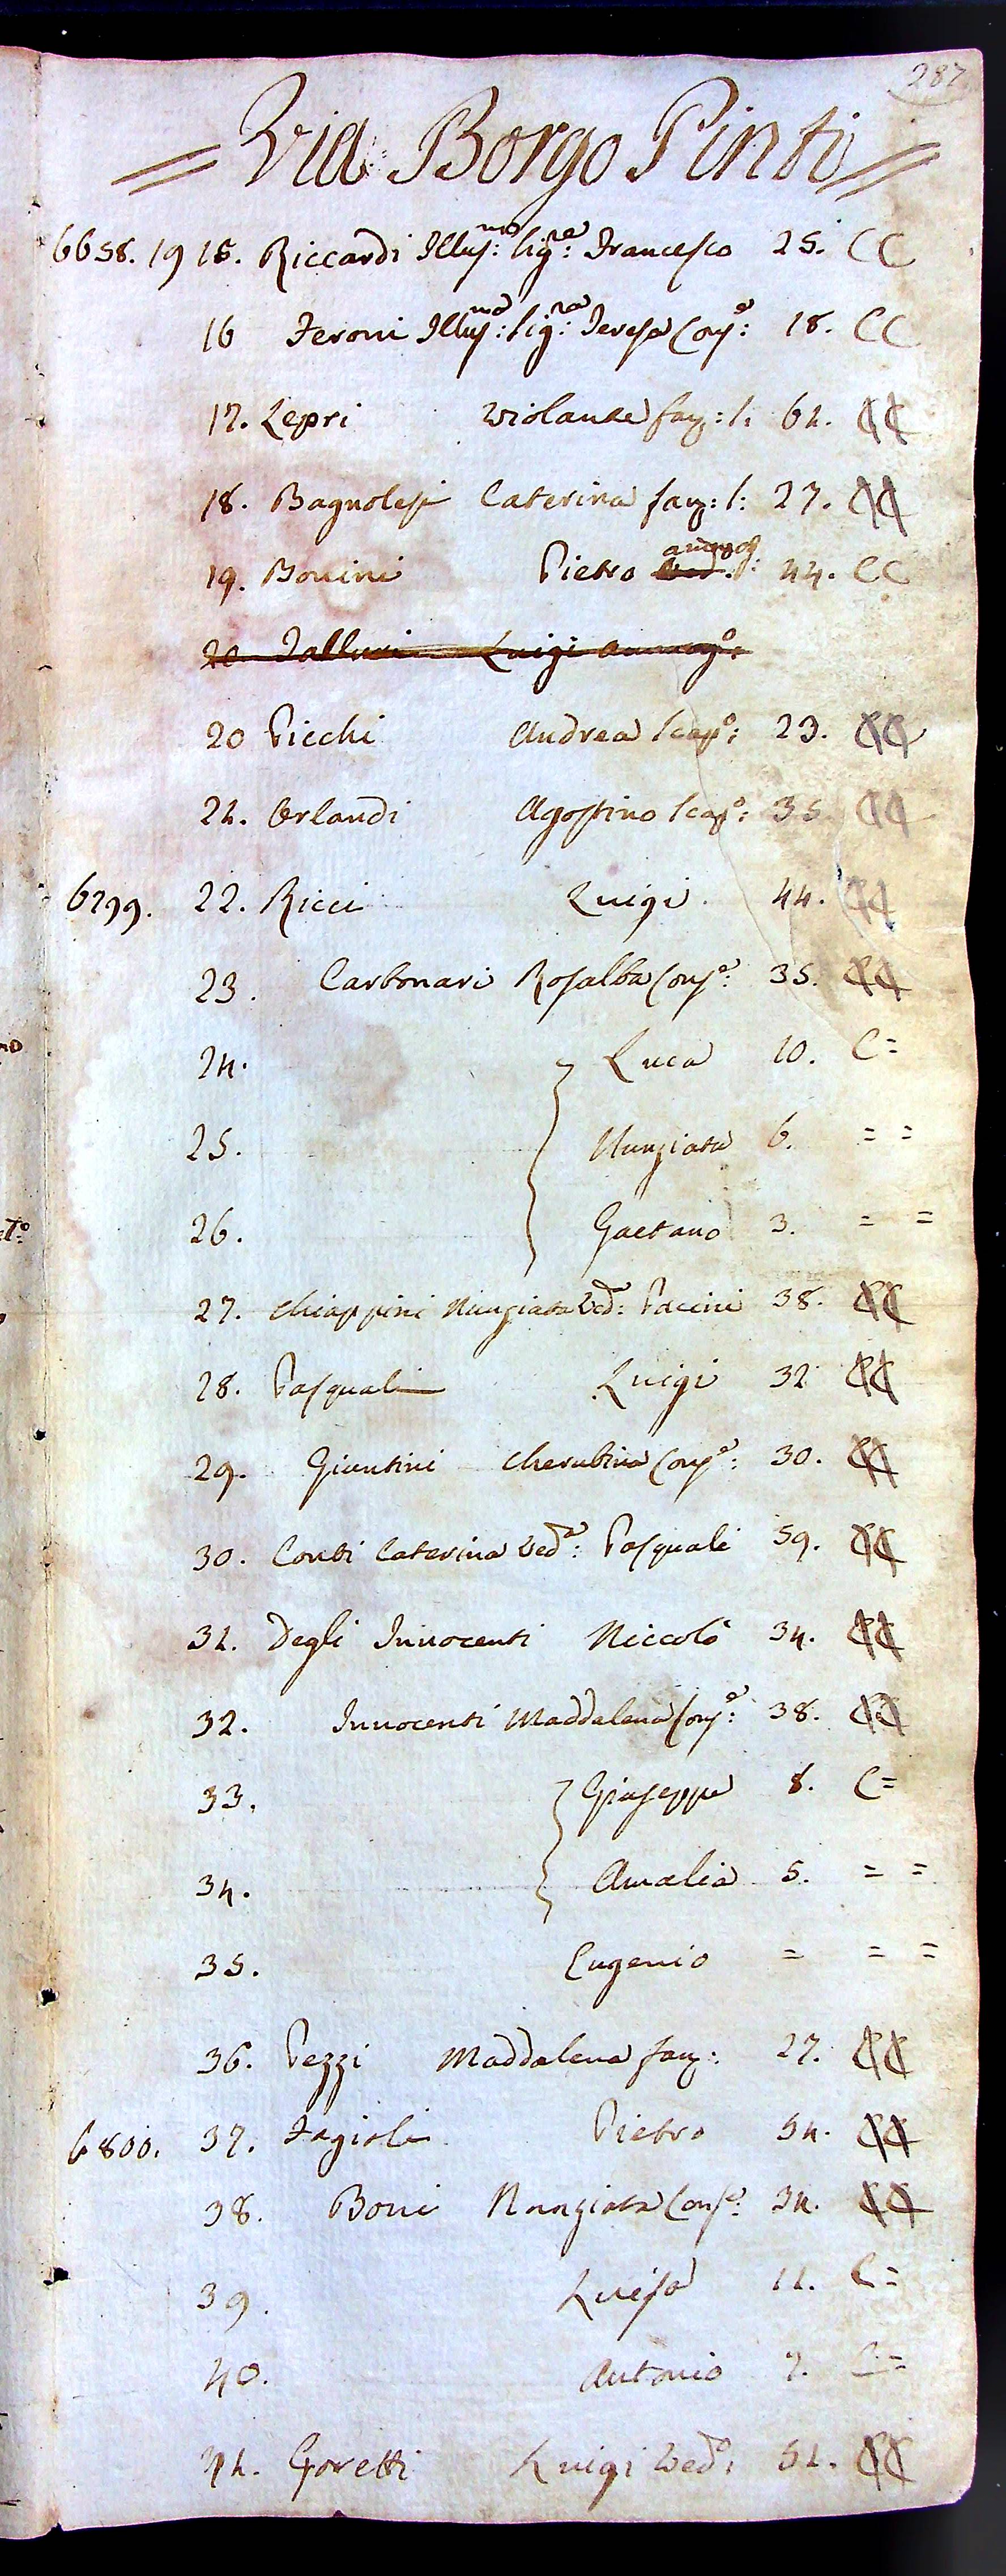 287
= Via Borgo Pinti =
6658. 19 15. Riccardi Illus:mo Sig:re Francesco 25. CC
16 Feroni Illus:ma Sig:ra Teresa Cons:e 18. CC
17. Lepri Violante fan: s: 61. CC
18. Bagnolesi Caterina fan: s: 27. CC
19. Bonini Pietro ammog: 44. CC
20 Luigi ammog:o
20 Picchi Andrea scap:o 23. CC
21. Orlandi Agostino scap:o 35 CC
6799. 22. Ricci Luigi 44. CC
23. Carbonari Rosalba Cons:e 35. CC
24. Luca 10. C=
25. Nunziata 6. = =
26. Gaetano 3. = =
27. Chiappini Nunziata Ved:a Paccini 38. CC
28. Pasquali Luigi 32 CC
29. Giuntini Cherubina Cons:e 30. CC
30. Conti Caterina Ved:a Pasquali 59. CC
31. Degli Innocenti Niccolò 34. CC
32. Innocenti Maddalena Cons:e 38. CC
33. Giuseppe 8. C=
34. Amalia 5. = =
35. Eugenio = = =
36. Pezzi Maddalena fan: 27. CC
6800. 37. Fagioli Pietro 54. CC
38. Boni Nunziata Cons:e 34. CC
39. Luisa 11. C=
40. Antonio 7. C=
41. Goretti Luigi Ved:o 51. CC